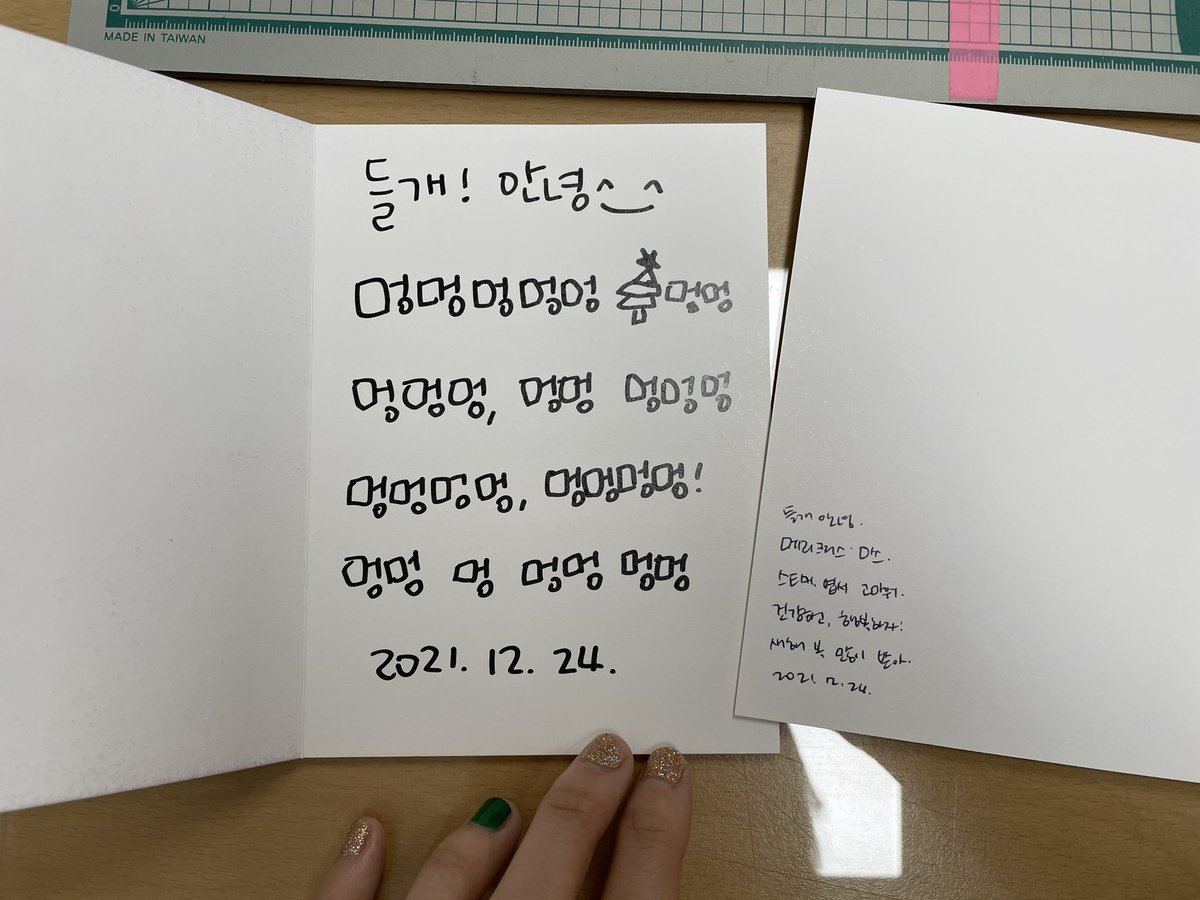 MADE IN TAIWAN
0
들개! 안녕^_^
멍멍멍멍멍 멍멍
멍멍멍, 멍멍 멍멍멍
멍멍멍멍, 멍멍멍멍!
멍멍 멍 멍멍 멍멍
2021. 12. 24.
들개 안녕.
메리크리스마스.
엽서 고마워.
건강하고, 행복하자!
새해 복 많이 받아.
2021. 12. 24.